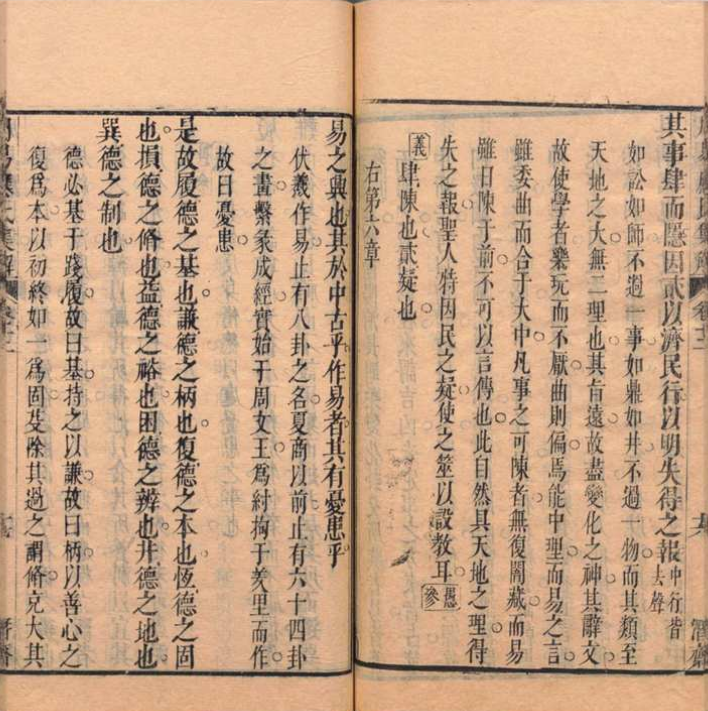 其事肆而隱因貳以濟民行以明失得之報中行皆去聲
如訟如師不過一事如鼎如井不過一物而其類至
天地之大無二理也其旨遠故盡變化之神其辭文
故使學者樂玩而不厭曲則偏焉能中理而易之言
雖委曲而合于大中凡事之可陳者無復闕藏而易
雖日陳于前不可以言傳也此自然具天地之理得
失之報聖人特因民之疑使之筮以設教耳愚參
義肆陳也貳疑也
右第六章
易之興也其於中古乎作易者其有憂患乎
伏羲作易止有八卦之名夏商以前止有六十四卦
之畫繫彖成經實始于周文王爲紂拘于羑里而作
故曰憂患
是故履德之基也謙德之柄也復德之本也恆德之固
也損德之脩也益德之裕也困德之辨也井德之地也
巽德之制也
德必基于踐履故曰基持之以謙故曰柄以善心之
復爲本以初終如一爲固芟除其過之謂脩克大其